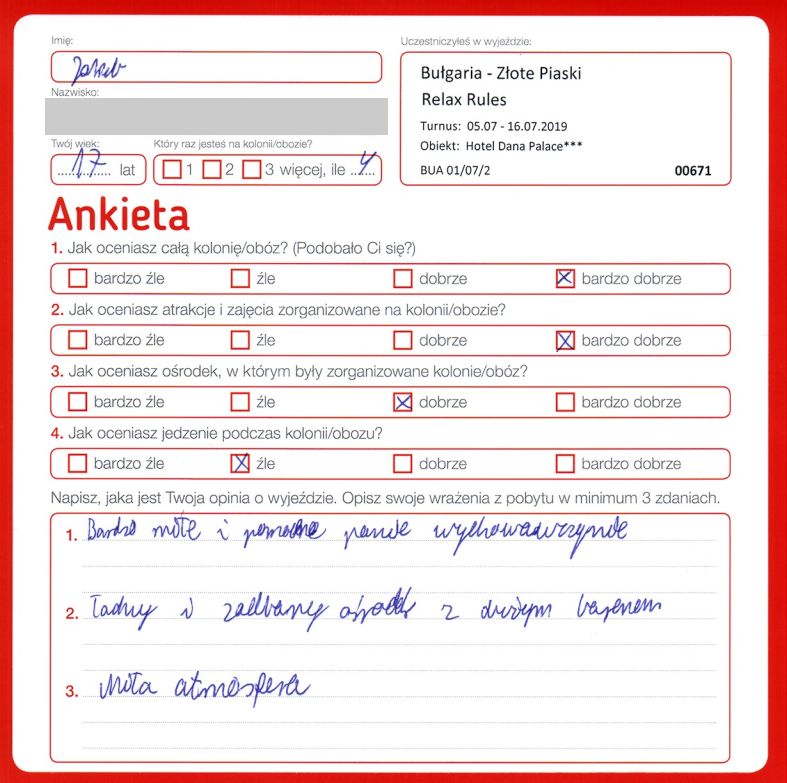 Imię:
Jakub
Nazwisko:
Twój wiek:
17 lat
Który raz jesteś na kolonii/obozie?
1 2 3 więcej, ile 4
Uczestniczyłeś w wyjeździe:
Bułgaria - Złote Piaski
Relax Rules
Turnus: 05.07 - 16.07.2019
Obiekt: Hotel Dana Palace***
BUA 01/07/2 00671
Ankieta
1. Jak oceniasz całą kolonię/obóz? (Podobało Ci się?)
bardzo źle źle dobrze bardzo dobrze
2. Jak oceniasz atrakcje i zajęcia zorganizowane na kolonii/obozie?
bardzo źle źle dobrze bardzo dobrze
3. Jak oceniasz ośrodek, w którym były zorganizowane kolonie/obóz?
bardzo źle źle dobrze bardzo dobrze
4. Jak oceniasz jedzenie podczas kolonii/obozu?
bardzo źle źle dobrze bardzo dobrze
Napisz, jaka jest Twoja opinia o wyjeździe. Opisz swoje wrażenia z pobytu w minimum 3 zdaniach.
1. Bardzo miłe i pomocne panie wychowawczynie
2. Ładny i zadbany ośrodek z dużym basenem
3. Miła atmosfera